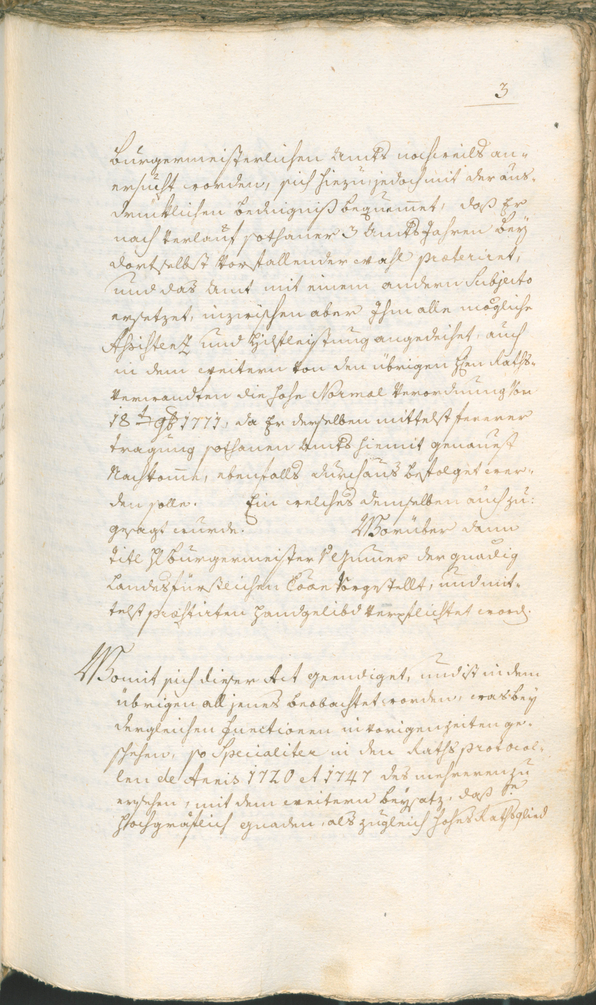 3
burgermeisterlichen Amts nochmals an-
ersucht worden, sich hiezu, jedoch mit der aus-
drucklichen bedingniß bequemmet, daß Er
nach Verlauf sothaner 3 Amts Jahren bey
dortselbst vorfallender wahl præterirt,
und das Amt mit einem andern Subjecto
ersetzet, inzwischen aber Ihm alle mögliche
Assistenz und Hilfleistung angedeihet, auch
in dem weitern von den übrigen Hren Raths-
verwandten die hohe Normal Verordnung von
18t 9b 1771, da Er derselben mittelst fererer
tragung sothanen Amts hiemit genauest
Nachkomme, ebenfalls durchaus befolget wer-
den solle. Ein welches demselben auch zu-
gesagt wurde. Worüber dann
titl H burgermeister der gnädig
Landesfürstlichen Coon Vorgestellt, und mit-
telst præstirten handgelibd verpflichtet word.
Womit sich dieser Act geendiget, und ist in dem
übrigen all jenes beobachtet worden, was bey
dergleichen functionen in vorigen zeiten ge-
schehen, so Specialiter in den Raths protocol-
len de Annis 1720 et 1747 des mehreren zu
ersehen, mit dem weitern beysatz, daß Se
Hochgräflich gnaden, als zugleich hohes Rathsglied